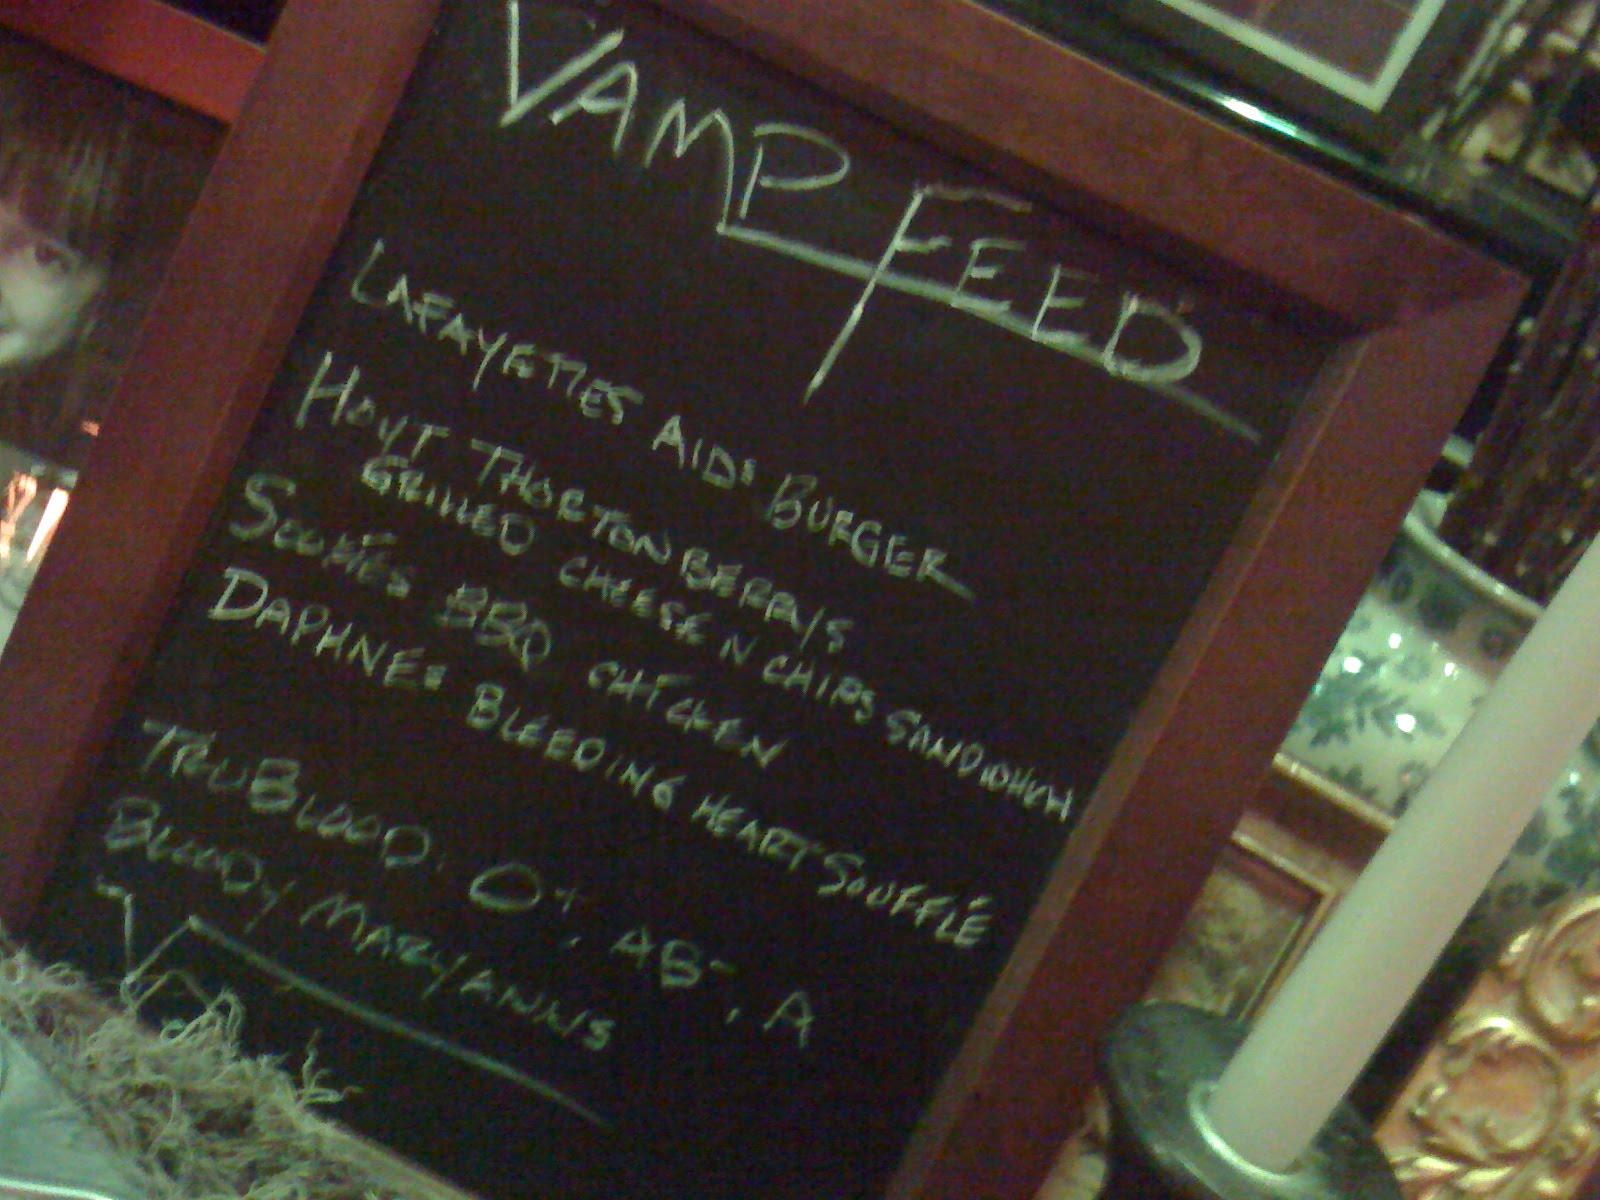 VAMP FEED
LAFAYETTES AIDS BURGER
HOYT THORTONBERRYS
GRILLED CHEESE N CHIPS SANDWHICH
SOOKIES BBQ CHICKEN
DAPHNES BLEEDING HEART SOUFFLÉ
TRUBLOOD: O+, AB-, A
BLOODY MARYANNS